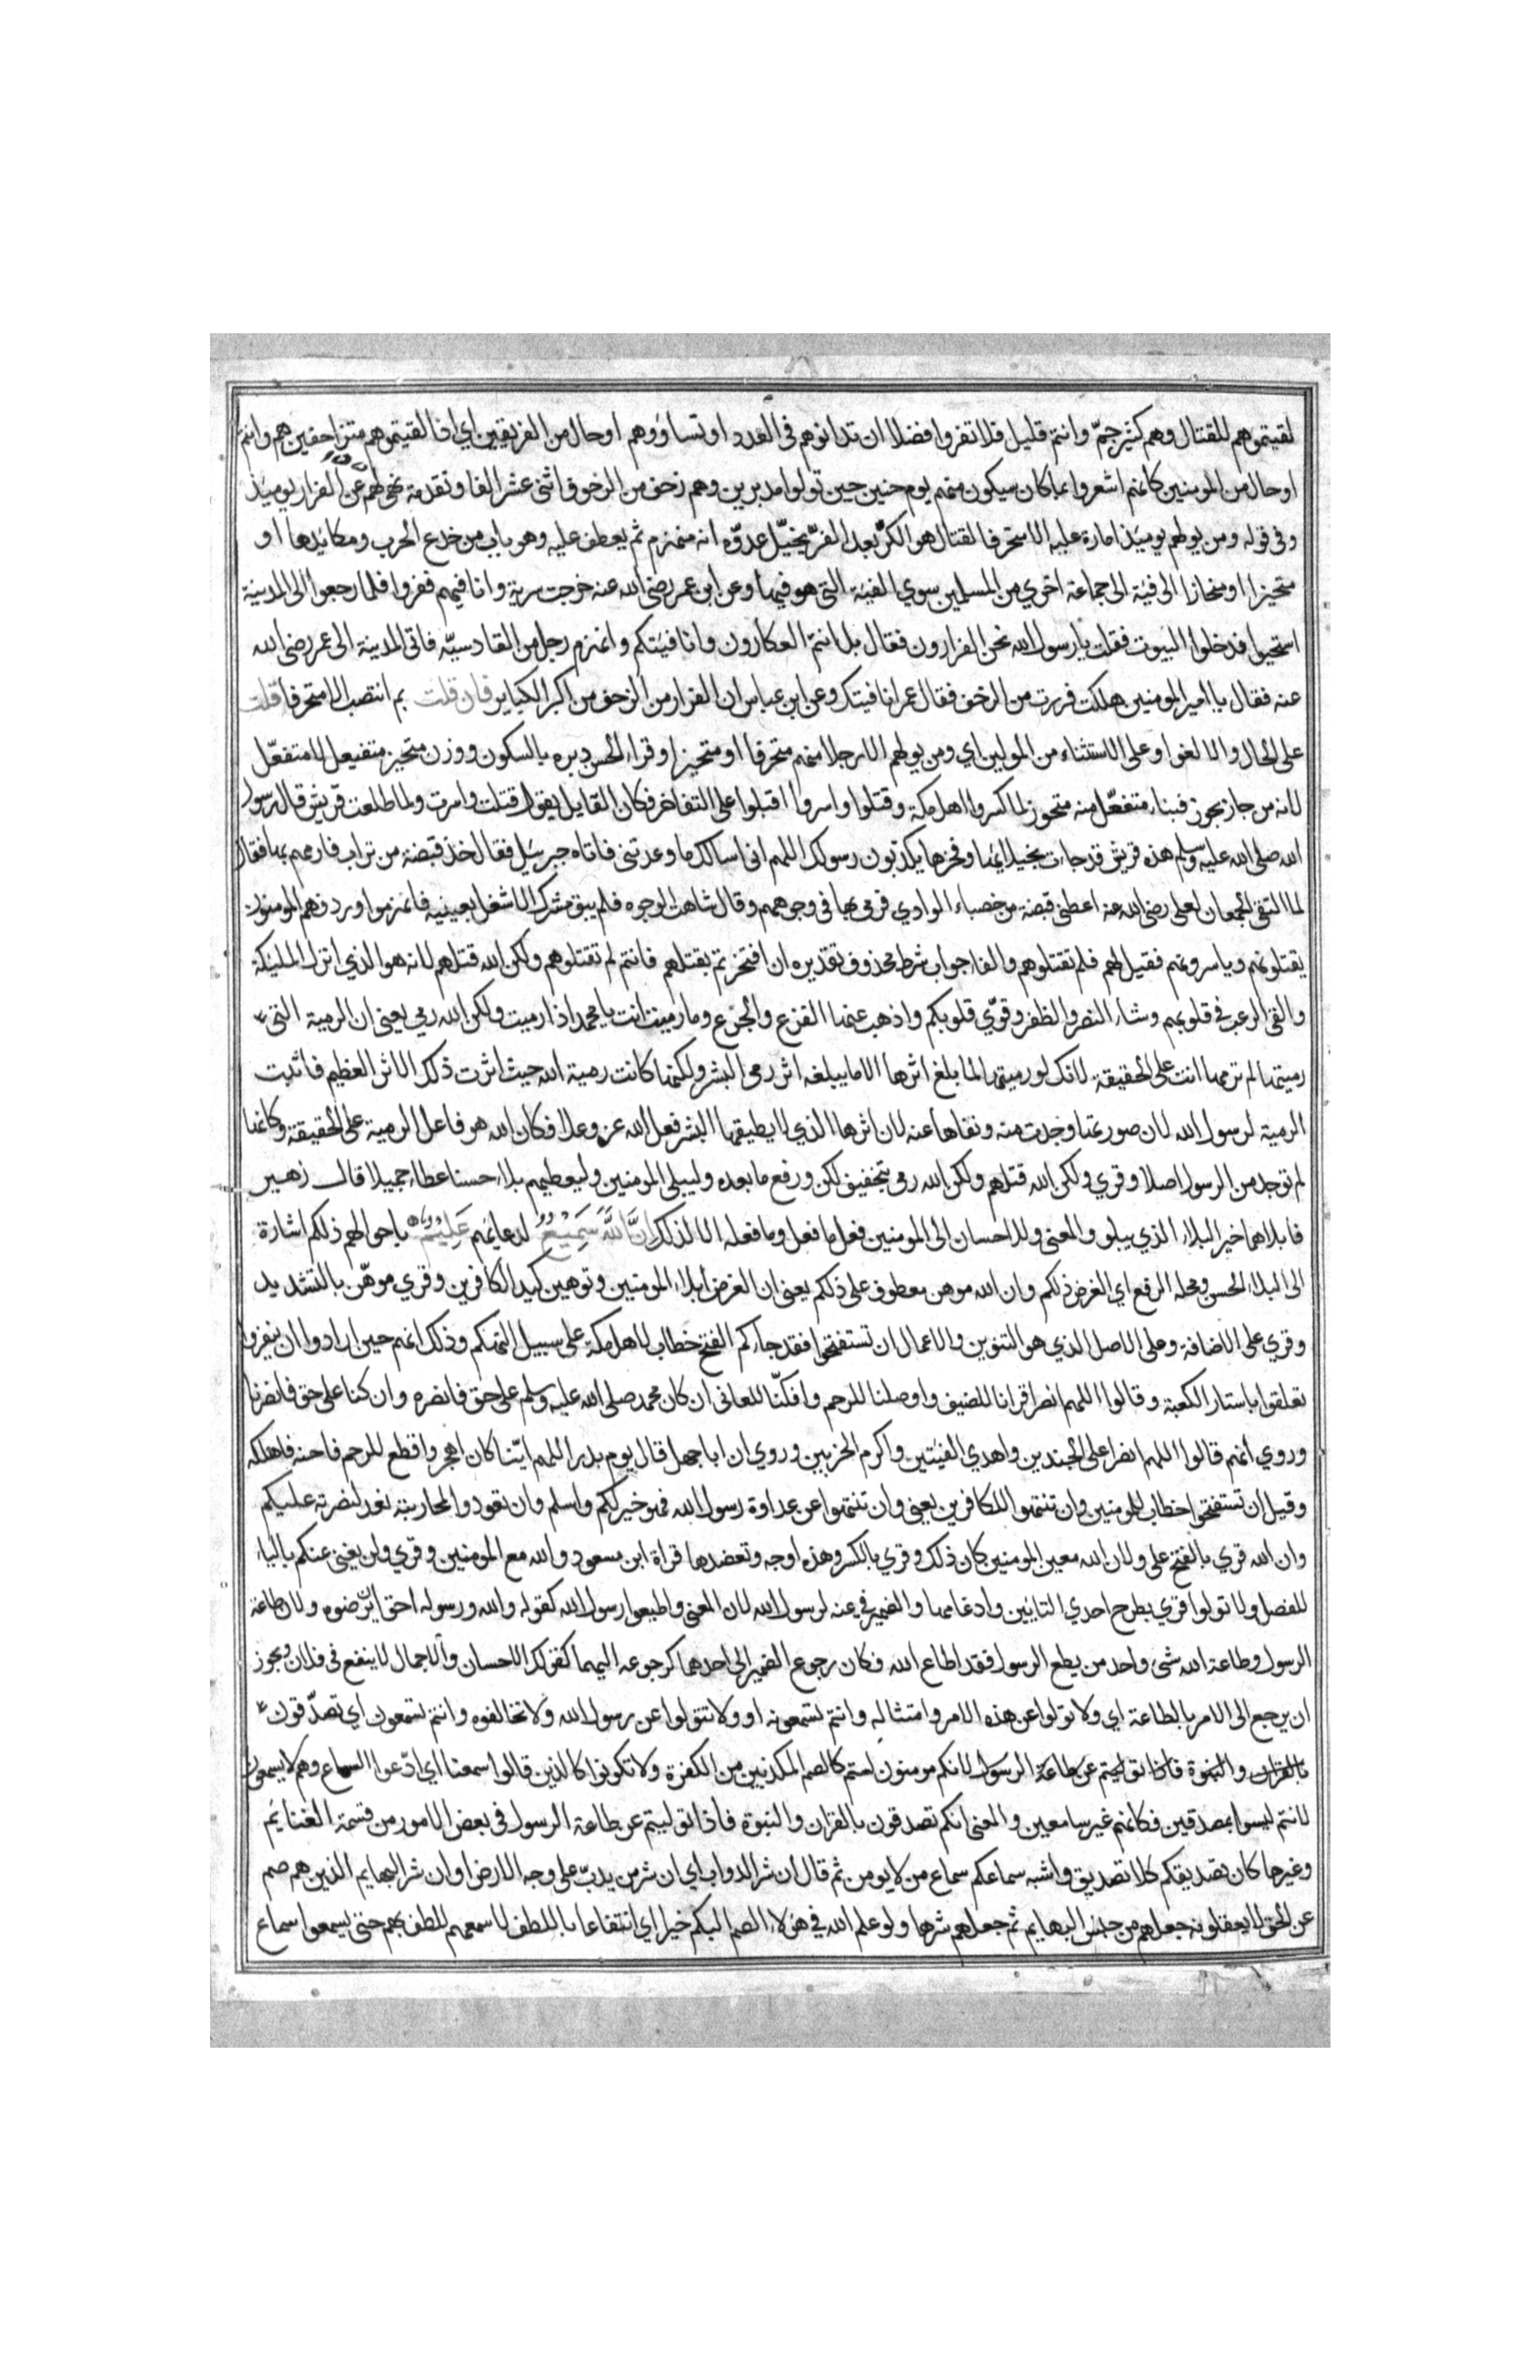 لقيتموهم للقتال وهم كثير جمّ وانتم قليل فلا تفروا فضلا ان تدانوهم فى العدد او تساووهم او حال من الفريقين اي اذا لقيتموهم متزاحفين هم وانتم
او حال من المومنين كانهم اشعروا بما كان سيكون منهم يوم حنين حين تولوا مدبرين وهم زحف من الزحوف اثنى عشر الفا وتقدمة نهى لهم عن الفرار يوميذ
وفى قوله ومن يولهم يوميذ امارة عليه الا متحرفا لقتال هو الكرّ بعد الفرّ يخيّل عدوّه انه منهزم ثم يعطف عليه وهو باب من خدع الحرب ومكايدها او
متحيزا او منحازا الى فئة الى جماعة اخري من المسلمين سوي الفية التى هو فيها وعن ابن عمر رضى الله عنه خرجت سرية وانا فيهم ففروا فلما رجعوا الى المدينة
استحيوا فدخلوا البيوت فقلت يا رسول الله نحن الفرارون فقال بل انتم العكارون وانا فيتكم وانهزم رجل من القادسيّه فاتى المدينة الى عمر رضى الله
عنه فقال يا امير المومنين هلكت فررت من الزحف فقال عمر انا فيتك وعن ابن عباس ان الفرار من الزحف من اكبر الكباير فان قلت بم انتصب الا متحرفا قلت
على الحال والا لغو او على الاستثناء من المولين اي ومن يولهم الا رجلا منهم متحرفا او متحيزا وقراء الحسن دبره بالسكون ووزن متحيز متفيعل لا متفعّل
لانه من حاز يحوز فبناء متفعّل منه متحوز لما كسروا اهل مكة وقتلوا واسروا اقبلوا على التفاخر فكان القايل يقول قتلت واسرت ولما طلعت قريش قال رسول
الله صلى الله عليه وسلم هذه قريش قد جات بخيلايها وفخرها يكذبون رسولك اللهم انى اسالك ما وعدتنى فاتاه جبريل فقال خذ قبضة من تراب فارمهم بها فقال
لما التقى الجمعان لعلى رضى الله عنه اعطنى قبضة من حصباء الوادي فرمى بها فى وجوههم وقال شاهت الوجوه فلم يبق مشرك الا شغل بعينيه فانهزموا وردفهم المومنون
يقتلونهم وياسرونهم فقيل لهم فلم تقتلوهم والفاء جواب شرط محذوف تقديره ان افتخرتم بقتلهم فانتم لم تقتلوهم ولكن الله قتلهم لانه هو الذي انزل المليكة
والقى الرعب فى قلوبهم وشاء النصر والظفر وقوّي قلوبكم واذهب عنها الفزع والجزع وما رميت انت يا محمد اذ رميت ولكن الله رمى يعنى ان الرمية التى
رميتها لم ترمها انت على الحقيقة لانك لو رميتها لما بلغ اثرها الا ما يبلغه اثر رمى البشر ولكنها كانت رمية الله حيث اثرت ذلك الاثر العظيم فاثبت
الرمية لرسول الله لان صورتها وجدت منه ونفاها عنه لان اثرها الذي لا يطيقها البشر فعل الله عز وعلا فكان الله هو فاعل الرمية على الحقيقة وكانها
لم توجد من الرسول اصلا وقري ولكن الله قتلهم ولكن الله رمى بتخفيف لكن ورفع ما بعده وليبلى المومنين وليعطيهم بلاء حسنا عطاء جميلا قال زهير
فابلاهما خير البلاء الذي يبلو والمعنى وللاحسان الى المومنين فعل ما فعل وما فعله الا لذلك اِنَّ اللّٰهَ سَمِيْعٌ لدعايهم عَلِيْمٌ باحوالهم ذلكم اشارة
الى البلاء الحسن ومحله الرفع اي الغرض ذلكم وان الله موهن معطوف على ذلكم يعنى ان الغرض ابلاء المومنين وتوهين كيد الكافرين وقري موهّن بالتشديد
وقري على الاضافة وعلى الاصل الذي هو التنوين والاعمال ان تستفتحوا فقد جاءكم الفتح خطاب لاهل مكة على سبيل التهكم وذلك انهم حين ارادوا ان ينفروا
تعلقوا باستار الكعبة وقالوا اللهم انصر اقرانا للضيف واوصلنا للرحم وافكّنا للعانى ان كان محمد صلى الله عليه وسلم على حق فانصره وان كنا على حق فانصرنا
وروي انهم قالوا اللهم انصر اعلى الجندين واهدي الفيتين واكرم الحزبين وروي ان ابا جهل قال يوم بدر اللهم ايّنا كان اهجر واقطع للرحم فاحنه فاهلكه
وقيل ان تستفتحوا خطاب للمومنين وان تنتهوا للكافرين يعنى وان تنتهوا عن عداوة رسول الله فهو خير لكم واسلم وان تعودوا لمحاربته نعد لنصرته عليكم
وان الله قري بالفتح على ولان الله معين المومنين كان ذلك وقري بالكسر وهذه اوجه وتعضدها قراة ابن مسعود والله مع المومنين وقري ولن يغنى عنكم بالياء
للفصل ولا تولوا قري بطرح احدي التايين وادغامها والضمير فى عنه لرسول الله لان المعنى واطيعوا رسول الله كقوله والله ورسوله احق ان يرضوه ولان طاعة
الرسول وطاعة الله شى واحد من يطع الرسول فقد اطاع الله فكان رجوع الضمير الى احدهما كرجوعه اليهما كقولك الاحسان والاجمال لا ينفع فى فلان ويجوز
ان يرجع الى الامر بالطاعة اي ولا تولوا عن هذه الامر وامتثاله وانتم تسمعونه او ولا تتولوا عن رسول الله ولا تخالفوه وانتم تسمعون اي تصدّقون
بالقران والنبوة فاذا توليتم عن طاعة الرسول لانكم مومنون لستم كالصم المكذبين من الكفرة ولا تكونوا كالذين قالوا سمعنا اي ادّعوا السماع وهم لا يسمعون
لانتم ليسوا بمصدقين فكانهم غير سامعين والمعنى انكم تصدقون بالقران والنبوة فاذا توليتم عن طاعة الرسول فى بعض الامور من قسمة الغنايم
وغيرها كان تصديقكم كلا تصديق واشبه سماعكم سماع من لا يومن ثم قال ان شر الدواب اي ان شر من يدبّ على وجه الارض او ان شر البهايم الذين هم صم
عن الحق لا يعقلونه جعلهم من جنس البهايم ثم جعلهم شرها ولو علم الله فى هولاء الصم البكم خيرا اي انتفاعا باللطف لاسمعهم للطف بهم حتى يسمعوا سماع